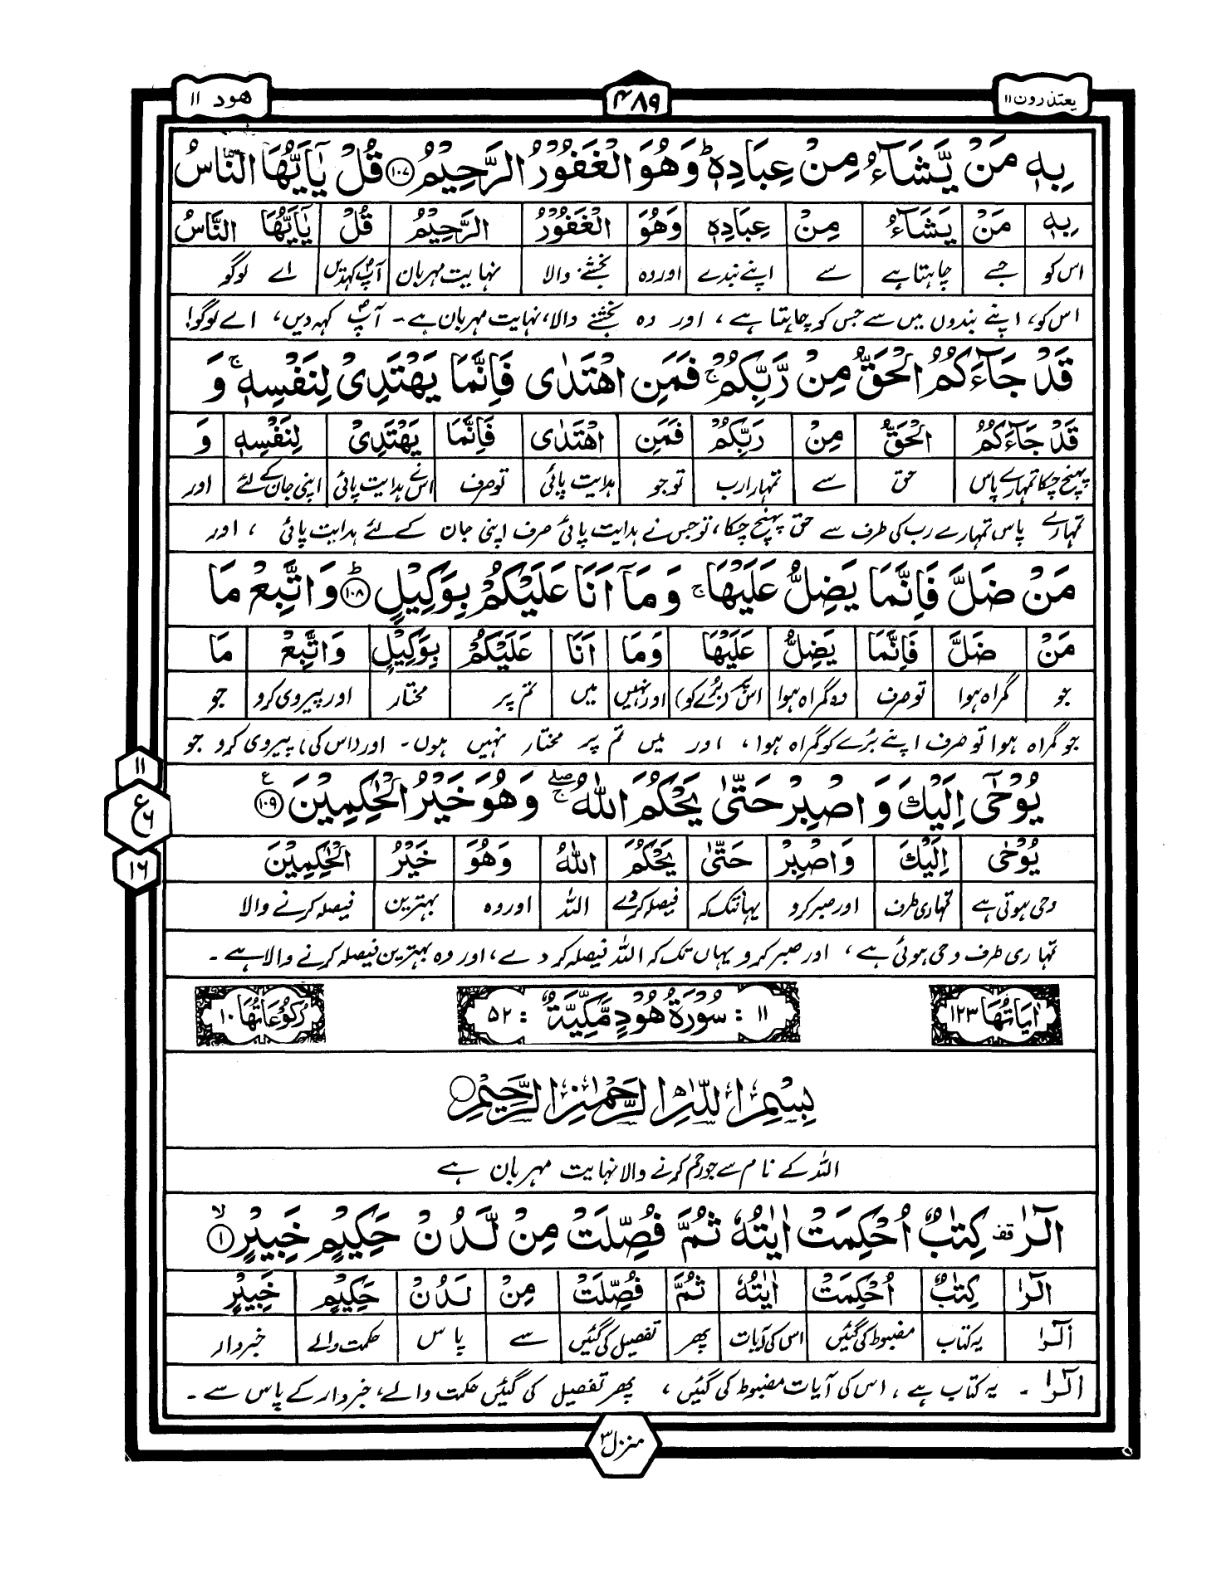 یعتذرون ۱۱
۴۸۹
ھود ۱۱
بِهٖ مَنْ یَّشَآءُ مِنْ عِبَادِهٖ ؕ وَهُوَ الْغَفُوْرُ الرَّحِیْمُ ۝۱۰۷ قُلْ یٰۤاَیُّهَا النَّاسُ
بِهٖ مَنْ یَشَآءُ مِنْ عِبَادِهٖ وَهُوَ الْغَفُوْرُ الرَّحِیْمُ قُلْ یٰۤاَیُّهَا النَّاسُ
اس کو جسے چاہتا ہے سے اپنے بندے اور وہ بخشنے والا نہایت مہربان آپؐ کہدیں اے لوگو
اس کو، اپنے بندوں میں سے جس کو چاہتا ہے، اور وہ بخشنے والا، نہایت مہربان ہے۔ آپؐ کہہ دیں، اے لوگو!
قَدْ جَآءَكُمُ الْحَقُّ مِنْ رَّبِّكُمْ ۚ فَمَنِ اهْتَدٰی فَاِنَّمَا یَهْتَدِیْ لِنَفْسِهٖ ۚ وَ
قَدْ جَآءَكُمُ الْحَقُّ مِنْ رَبِّكُمْ فَمَنِ اهْتَدٰی فَاِنَّمَا یَهْتَدِیْ لِنَفْسِهٖ وَ
پہنچ چکا تمہارے پاس حق سے تمہارا رب تو جو ہدایت پائی تو صرف اس نے ہدایت پائی اپنی جان کے لئے اور
تمہارے پاس تمہارے رب کی طرف سے حق پہنچ چکا، تو جس نے ہدایت پائی صرف اپنی جان کے لئے ہدایت پائی ، اور
مَنْ ضَلَّ فَاِنَّمَا یَضِلُّ عَلَیْهَا ۚ وَمَاۤ اَنَا عَلَیْكُمْ بِوَكِیْلٍ ۝۱۰۸ؕ وَاتَّبِعْ مَا
مَنْ ضَلَّ فَاِنَّمَا یَضِلُّ عَلَیْهَا وَمَا اَنَا عَلَیْكُمْ بِوَكِیْلٍ وَاتَّبِعْ مَا
جو گمراہ ہوا تو صرف وہ گمراہ ہوا اس پر (برُے کو) اور نہیں میں تم پر مختار اور پیروی کرو جو
جو گمراہ ہوا تو صرف اپنے برُے کو گمراہ ہوا، اور میں تم پر مختار نہیں ہوں۔ اور (اس کی) پیروی کرو جو
یُوْحٰۤی اِلَیْكَ وَاصْبِرْ حَتّٰی یَحْكُمَ اللّٰهُ ۖۚ وَهُوَ خَیْرُ الْحٰكِمِیْنَ ۝۱۰۹ ع
۱۱
ع ۶
۱۶
یُوْحٰی اِلَیْكَ وَاصْبِرْ حَتّٰی یَحْكُمَ اللّٰهُ وَهُوَ خَیْرُ الْحٰكِمِیْنَ
وحی ہوتی ہے تمہاری طرف اور صبر کرو یہانتک کہ فیصلہ کردے اللہ اور وہ بہترین فیصلہ کرنے والا
تمہاری طرف وحی ہوئی ہے، اور صبر کرو یہاں تک کہ اللہ فیصلہ کر دے، اور وہ بہترین فیصلہ کرنے والا ہے۔
اٰیَاتُهَا ۱۲۳
۱۱ : سُوْرَةُ هُوْدٍ مَّكِّیَّةٌ : ۵۲
رُكُوْعَاتُهَا ۱۰
بِسْمِ اللّٰهِ الرَّحْمٰنِ الرَّحِیْمِ
اللہ کے نام سے جو رحم کرنے والا نہایت مہربان ہے
الٓرٰ ۫ قف كِتٰبٌ اُحْكِمَتْ اٰیٰتُهٗ ثُمَّ فُصِّلَتْ مِنْ لَّدُنْ حَكِیْمٍ خَبِیْرٍ ۝۱ۙ
الٓرٰ كِتٰبٌ اُحْكِمَتْ اٰیٰتُهٗ ثُمَّ فُصِّلَتْ مِنْ لَدُنْ حَكِیْمٍ خَبِیْرٍ
الٓرٰ یہ کتاب مضبوط کی گئیں اس کی آیات پھر تفصیل کی گئیں سے پاس حکمت والے خبردار
الٓرٰ ۔ یہ کتاب ہے، اس کی آیات مضبوط کی گئیں ، پھر تفصیل کی گئیں حکمت والے، خبردار کے پاس سے ۔
منزل ۳